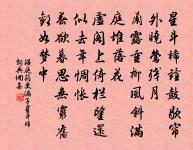 星斗稀鐘鼓歇帘
外曉鶯殘月
蘭露重柳風斜滿
庭堆落花
虛閣上倚欄望還
似去年惆悵
春欲暮思無窮舊
歡如夢中
溫庭筠更漏子星斗稀